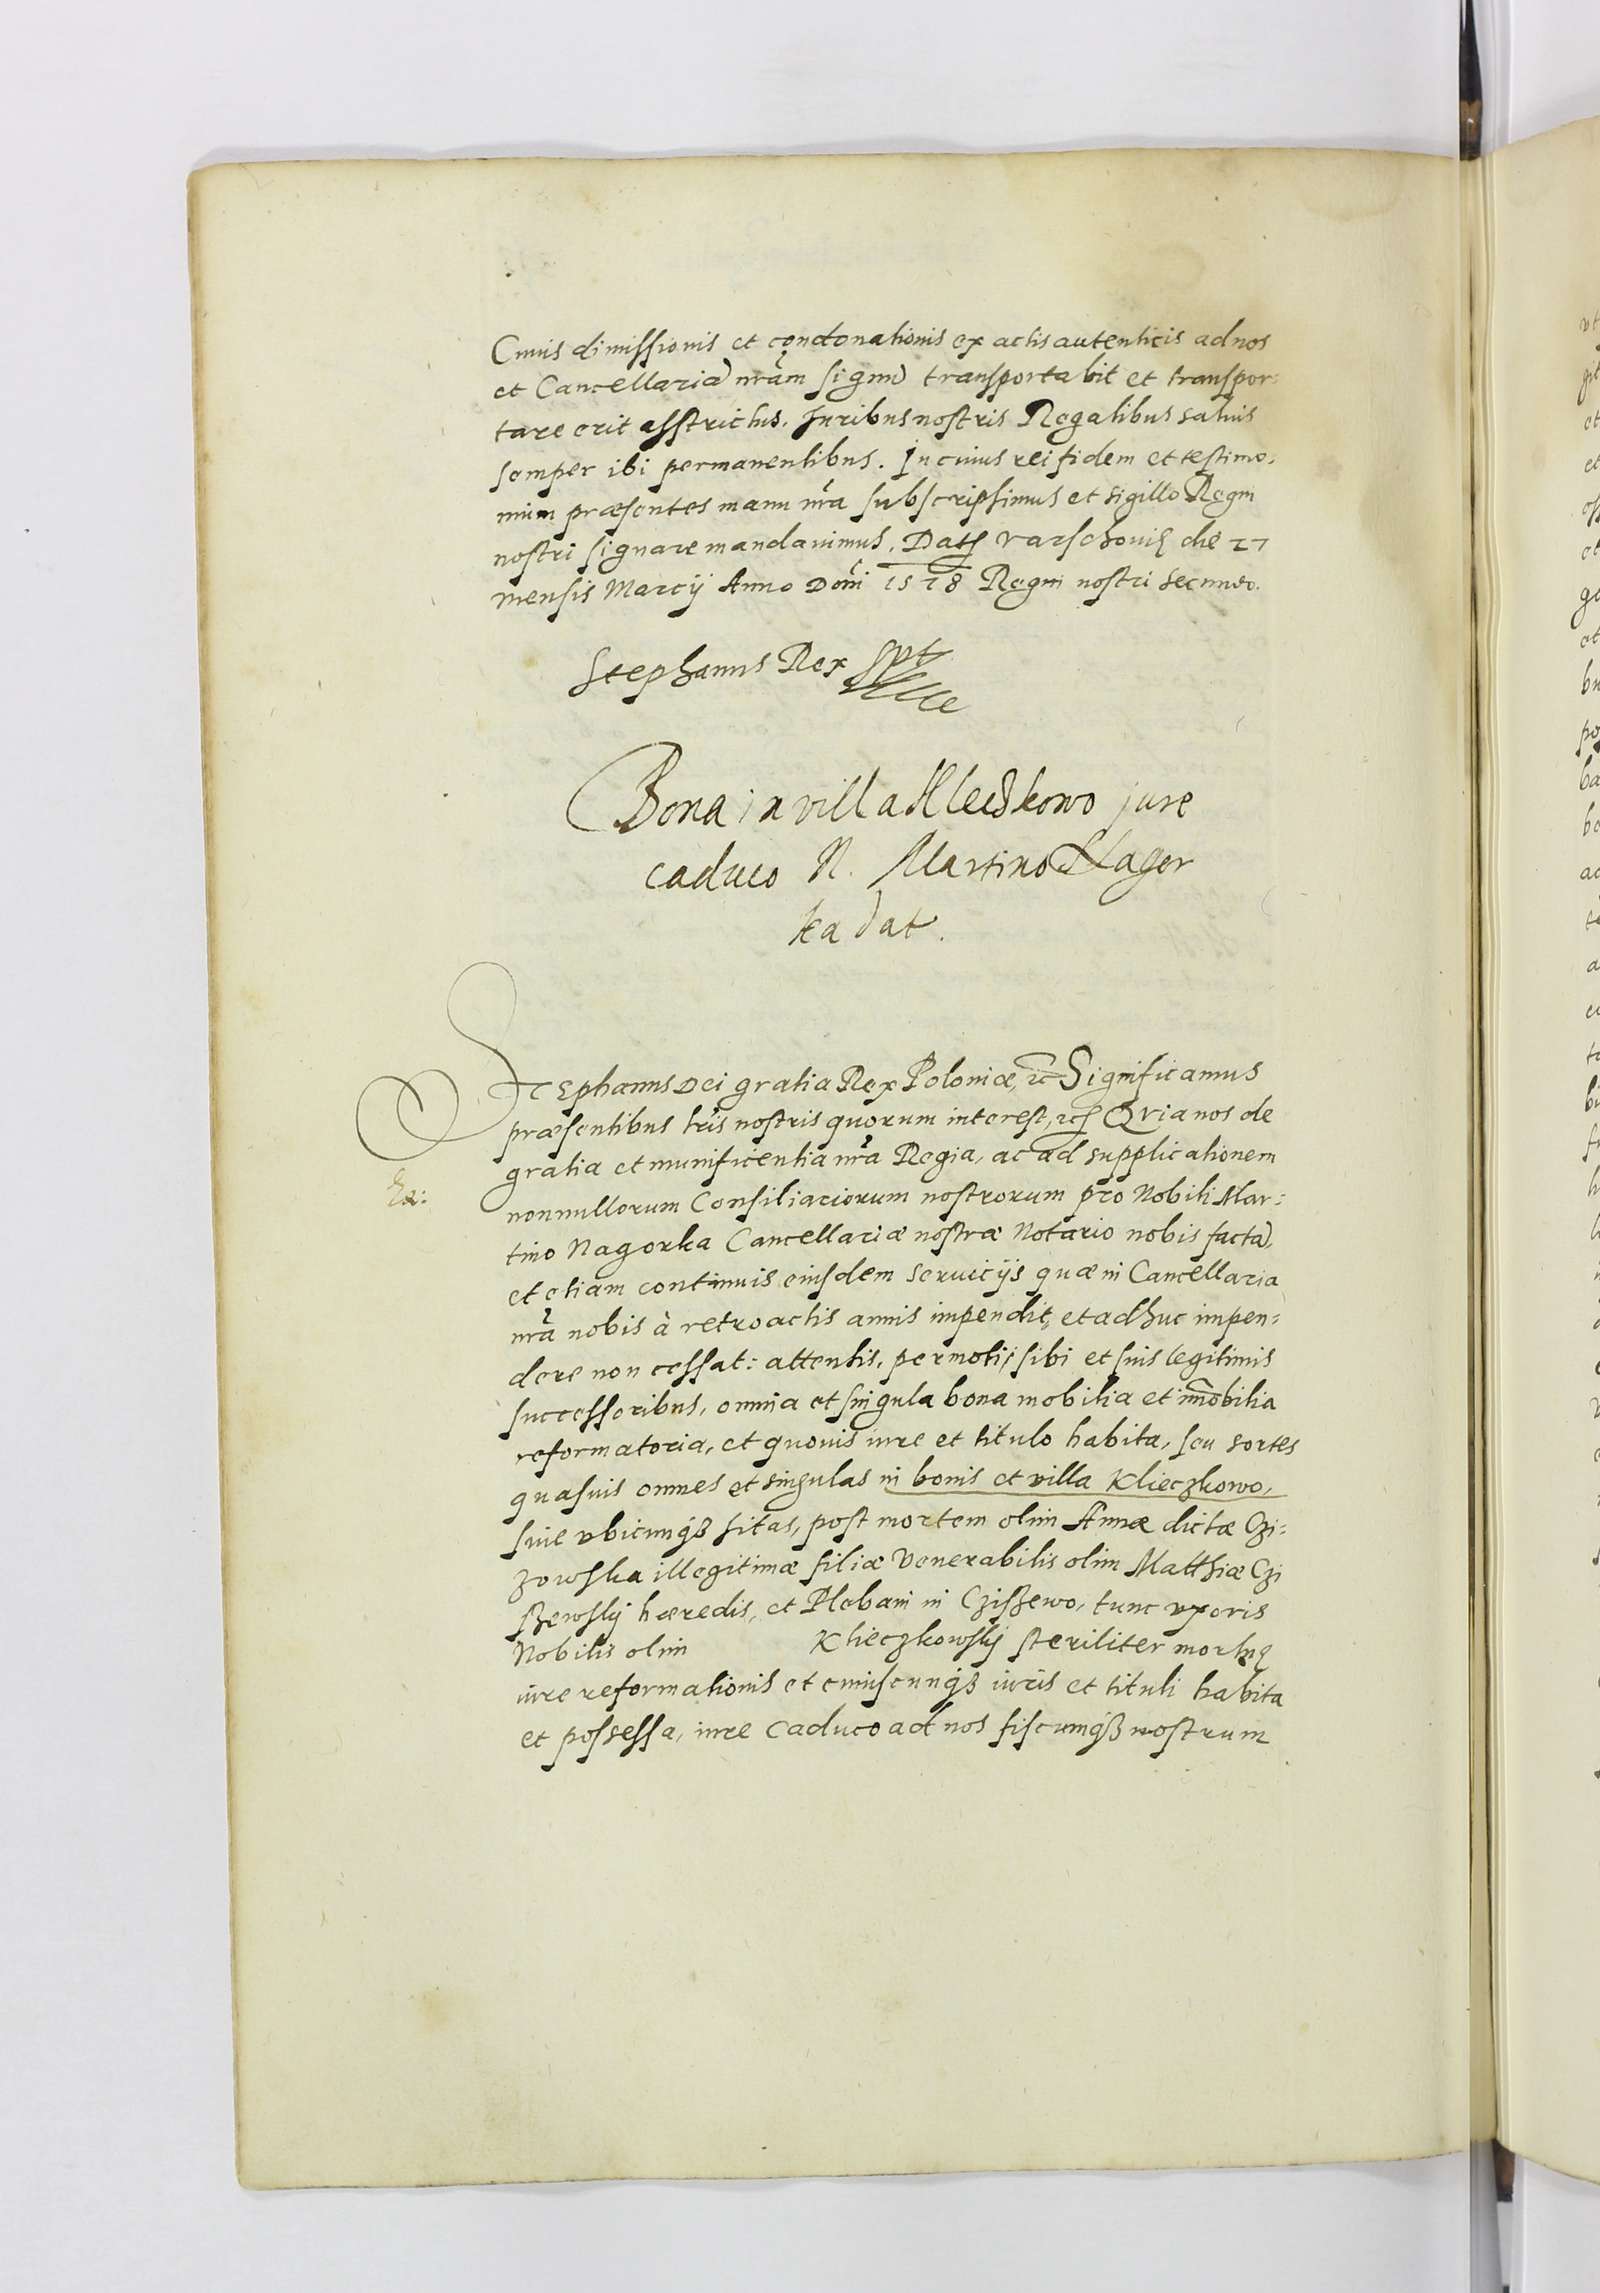 Cuius dimissionis et condonationis ex actis autenticis ad nos
et Cancellariã nrãm signũ transportabit et transpor:
tare erit asstrictus. Juribus nostris Regalibus saluis
semper ibi permanentibus. In cuius rei fidem et testimo:
nium præsentes manu nrã subscripsimus et sigillo Regni
nostri signare mandauimus. Datę Varschouię die 27
mensis Marcij Anno Dom̃i 1578 Regni nostri secundo.
Stephanus Rex spt
Bona in villa Kleczkowo jure
caduco N. Martino Nagor
ka dat.
Stephanus Dei gratia Rex Poloniæ, ꝛc Significamus
præsentibus lr̃is nostris quorum interest, Quia nos de
gratia et munificentia nrã Regia, ac ad supplicationem
nonnullorum Consiliariorum nostrorum pro Nobili Mar:
tino Nagorka Cancellariæ nostræ Notario nobis factã,
et etiam continuis eiusdem seruicijs quæ in Cancellaria
nrã nobis à retroactis annis impendit, et adhuc impen:
dere non cessat: attentis, permoti, sibi et suis legitimis
successoribus, omnia et singula bona mobilia et im̃obilia
reformatoria, et quouis iure et titulo habita, seu sortes
quasuis omnes et singulas in bonis et villa Klieczkowo,
siue vbicunqȝ sitas, post mortem olim Annæ dictæ Czi:
zowska illegitimæ filiæ Venerabilis olim Matthiæ Czi
szewskij hæredis, et Plebani in Cziszewo, tunc vxoris
Nobilis olim Klieczkowskij steriliter mortuę
iure reformationis et cuiuscunqȝ iuris et tituli habita
et possessa, iure caduco ad nos fiscumqȝ nostrum